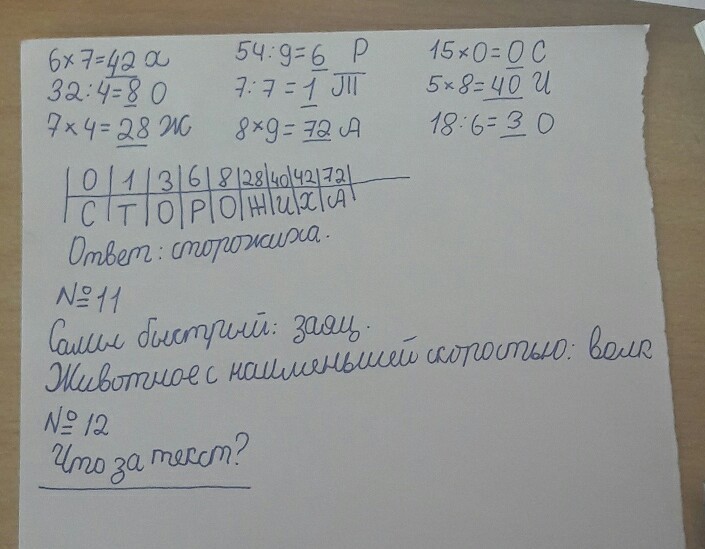 6×7=42 х 54:9=6 Р 15×0=0 С
32:4=8 О 7:7=1 Т 5×8=40 И
7×4=28 Ж 8×9=72 А 18:6=3 О
|0|1|3|6|8|28|40|42|72|
|С|Т|О|Р|О|Ж|И|Х|А|
Ответ: сторожиха.
№11
Самый быстрый: заяц.
Животное с наименьшей скоростью: волк
№12
Что за текст?